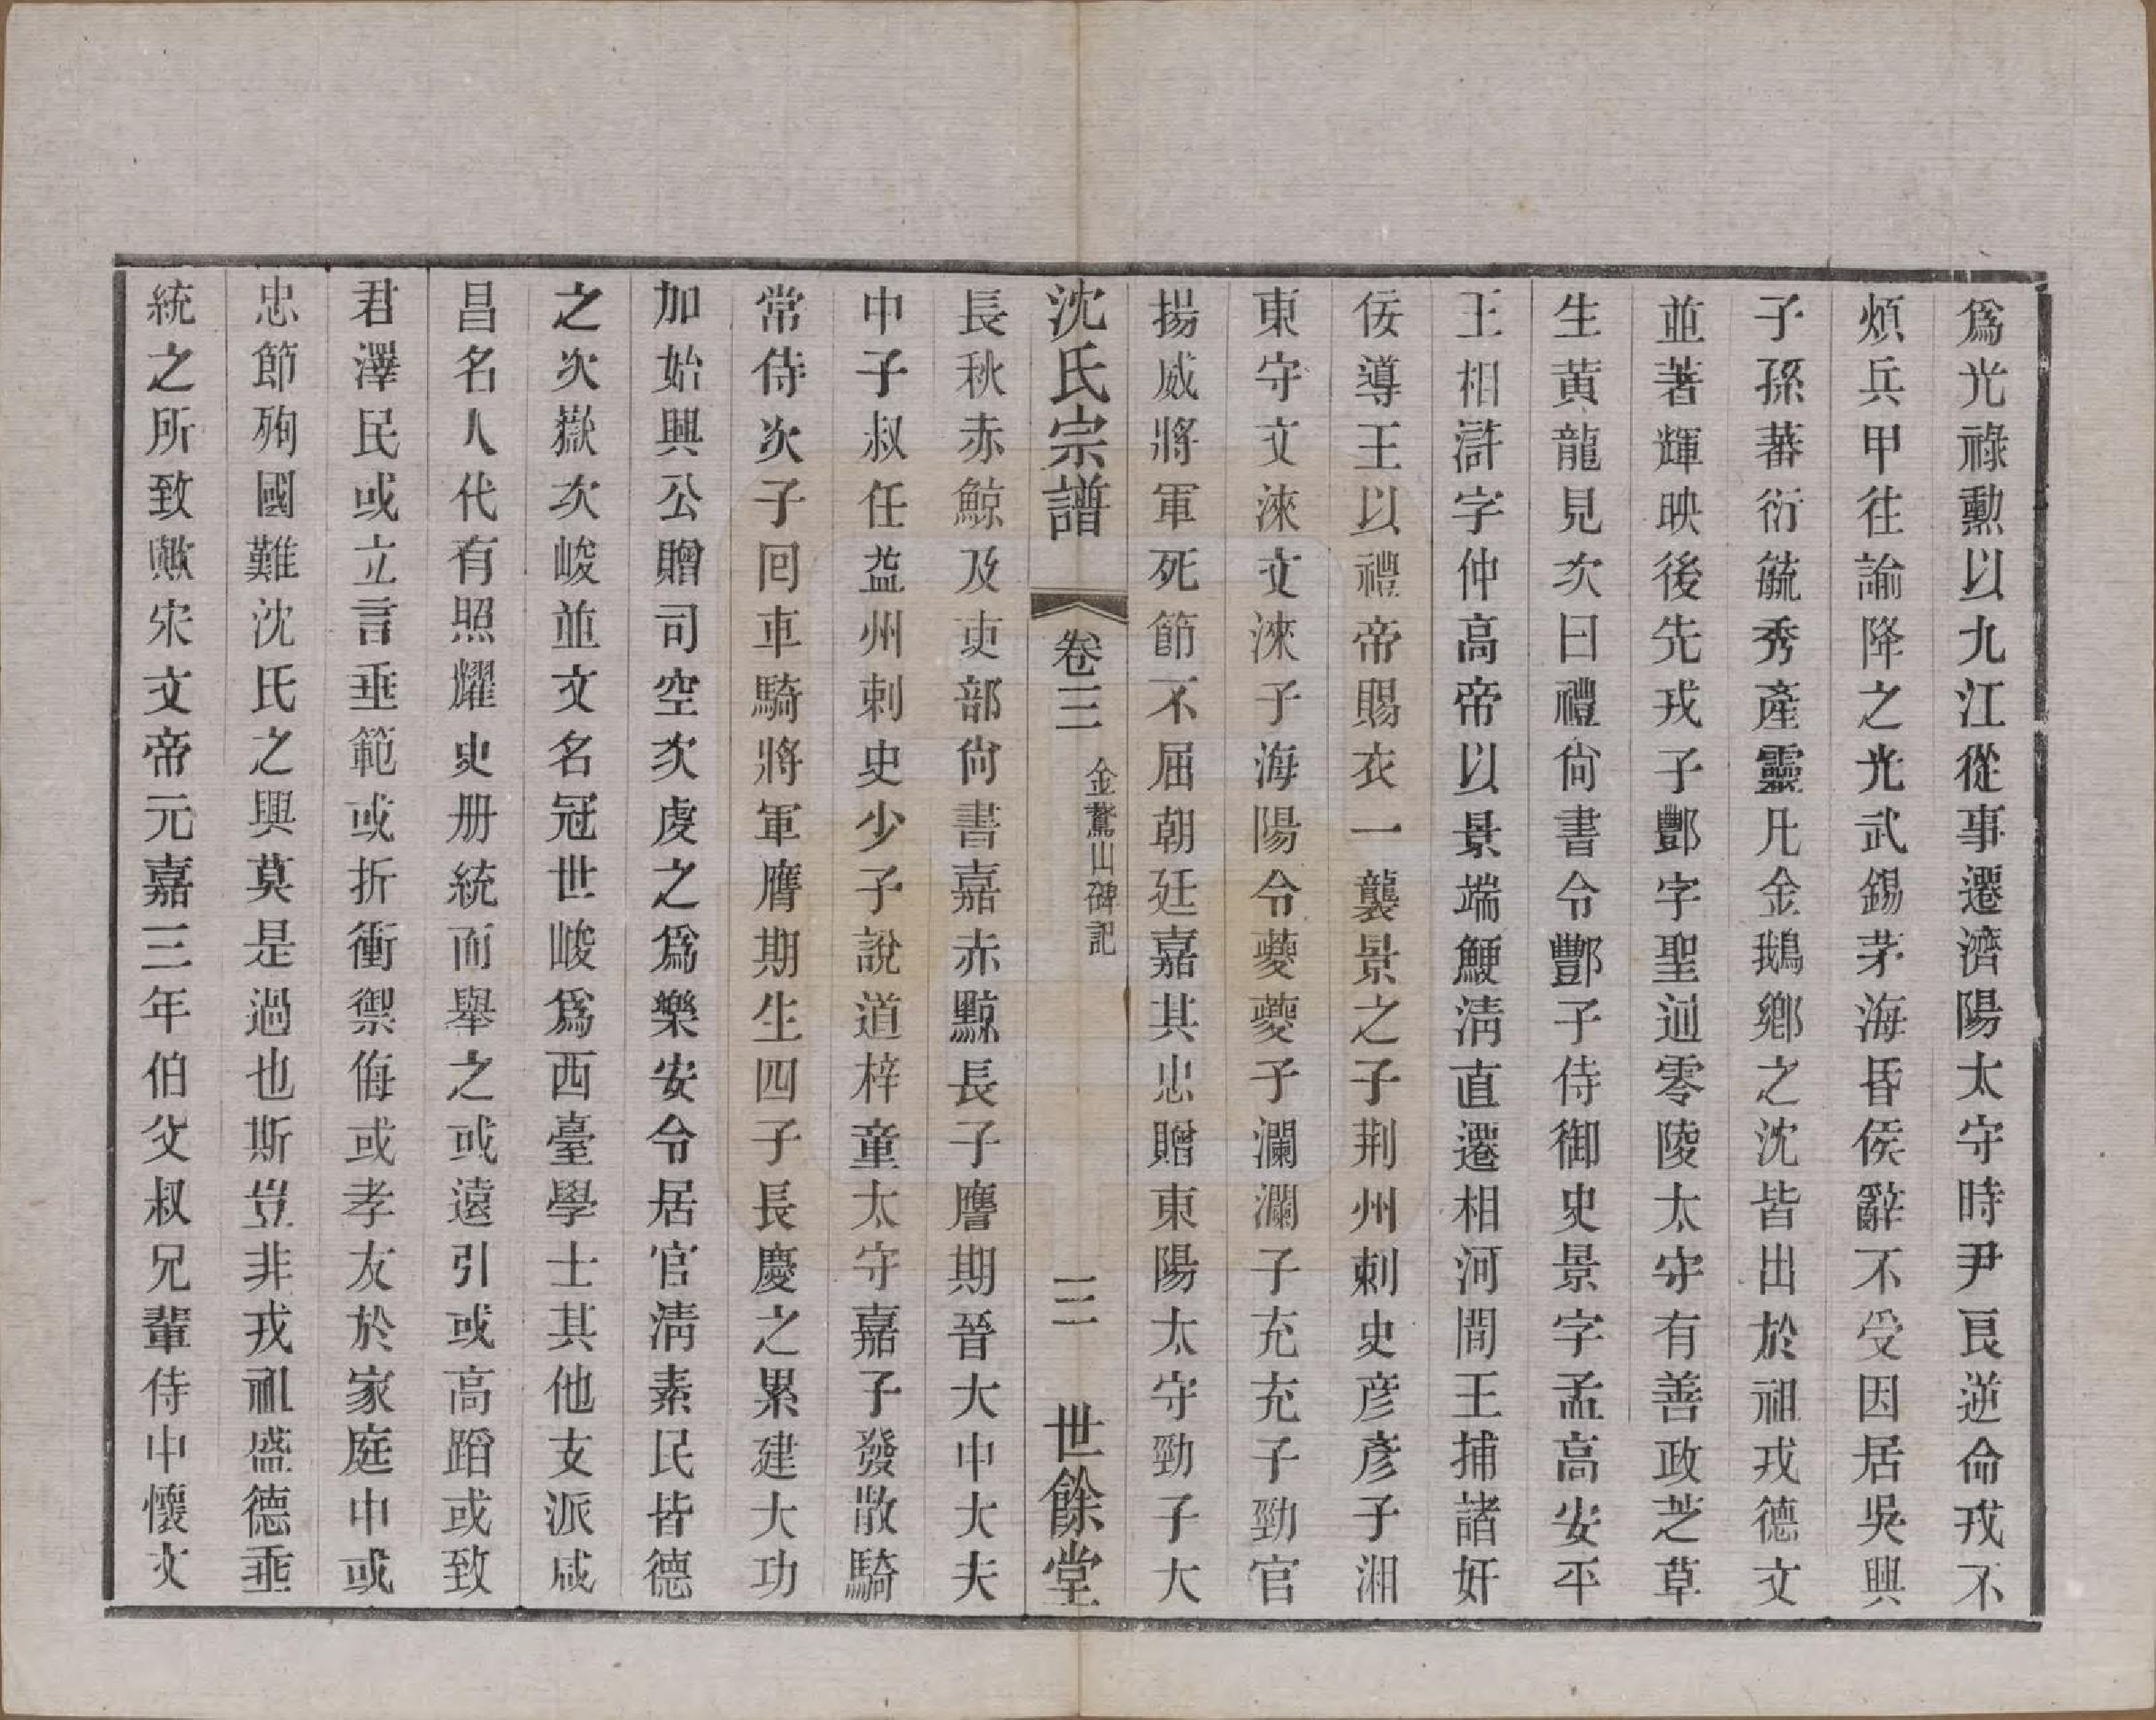 爲光祿勳以九江從事遷濟陽太守時尹良逆命戎不
煩兵甲往諭降之光武錫茅海昏侯辭不受因居吳興
子孫蕃衍毓秀產靈凡金鵝鄉之沈皆出於祖戎德文
並著輝映後先戎子酆字聖通零陵太守有善政芝草
生黃龍見次曰禮尙書令酆子侍御史景字孟高安平
王相滸字仲高帝以景端鯁淸直遷相河間王捕諸奸
佞導王以禮帝賜衣一襲景之子荆州刺史彦彥子湘
東守文淶文淶子海陽令夔夔子瀾瀾子充充子勁官
揚威將軍死節不屈朝廷嘉其忠贈東陽太守勁子大
沈氏宗譜 卷三 金鵞山碑記 三 世餘堂
長秋赤鯨及吏部尙書嘉赤黥長子膺期晉大中大夫
中子叔任益州刺史少子說道梓童太守嘉子發散騎
常侍次子囘車騎將軍膺期生四子長慶之累建大功
加始興公贈司空次虔之爲樂安令居官淸素民皆德
之次嶽次峻並文名冠世峻爲西臺學士其他支派咸
昌名人代有照耀史册統而舉之或遠引或高蹈或致
君澤民或立言垂範或折衝禦侮或孝友於家庭中或
忠節殉國難沈氏之興莫是過也斯豈非戎祖盛德垂
統之所致歟宋文帝元嘉三年伯父叔兄輩侍中懷文